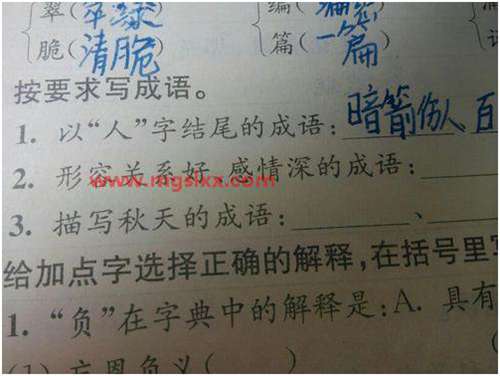 翠(翠绿)
脆(清脆) 篇(一篇)
按要求写成语。
1. 以“人”字结尾的成语:暗箭伤人 百
2. 形容关系好、感情深的成语:
www.mgslkx.com
3. 描写秋天的成语: 、
给加点字选择正确的解释,在括号里写
1. “负”在字典中的解释是:A. 具有
(1) 忘恩负义( )